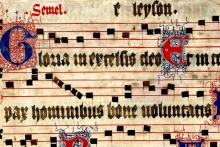 Semel. e leyson.
Gloria in excelsis deo Et in t
pax hominibus bone voluntatis